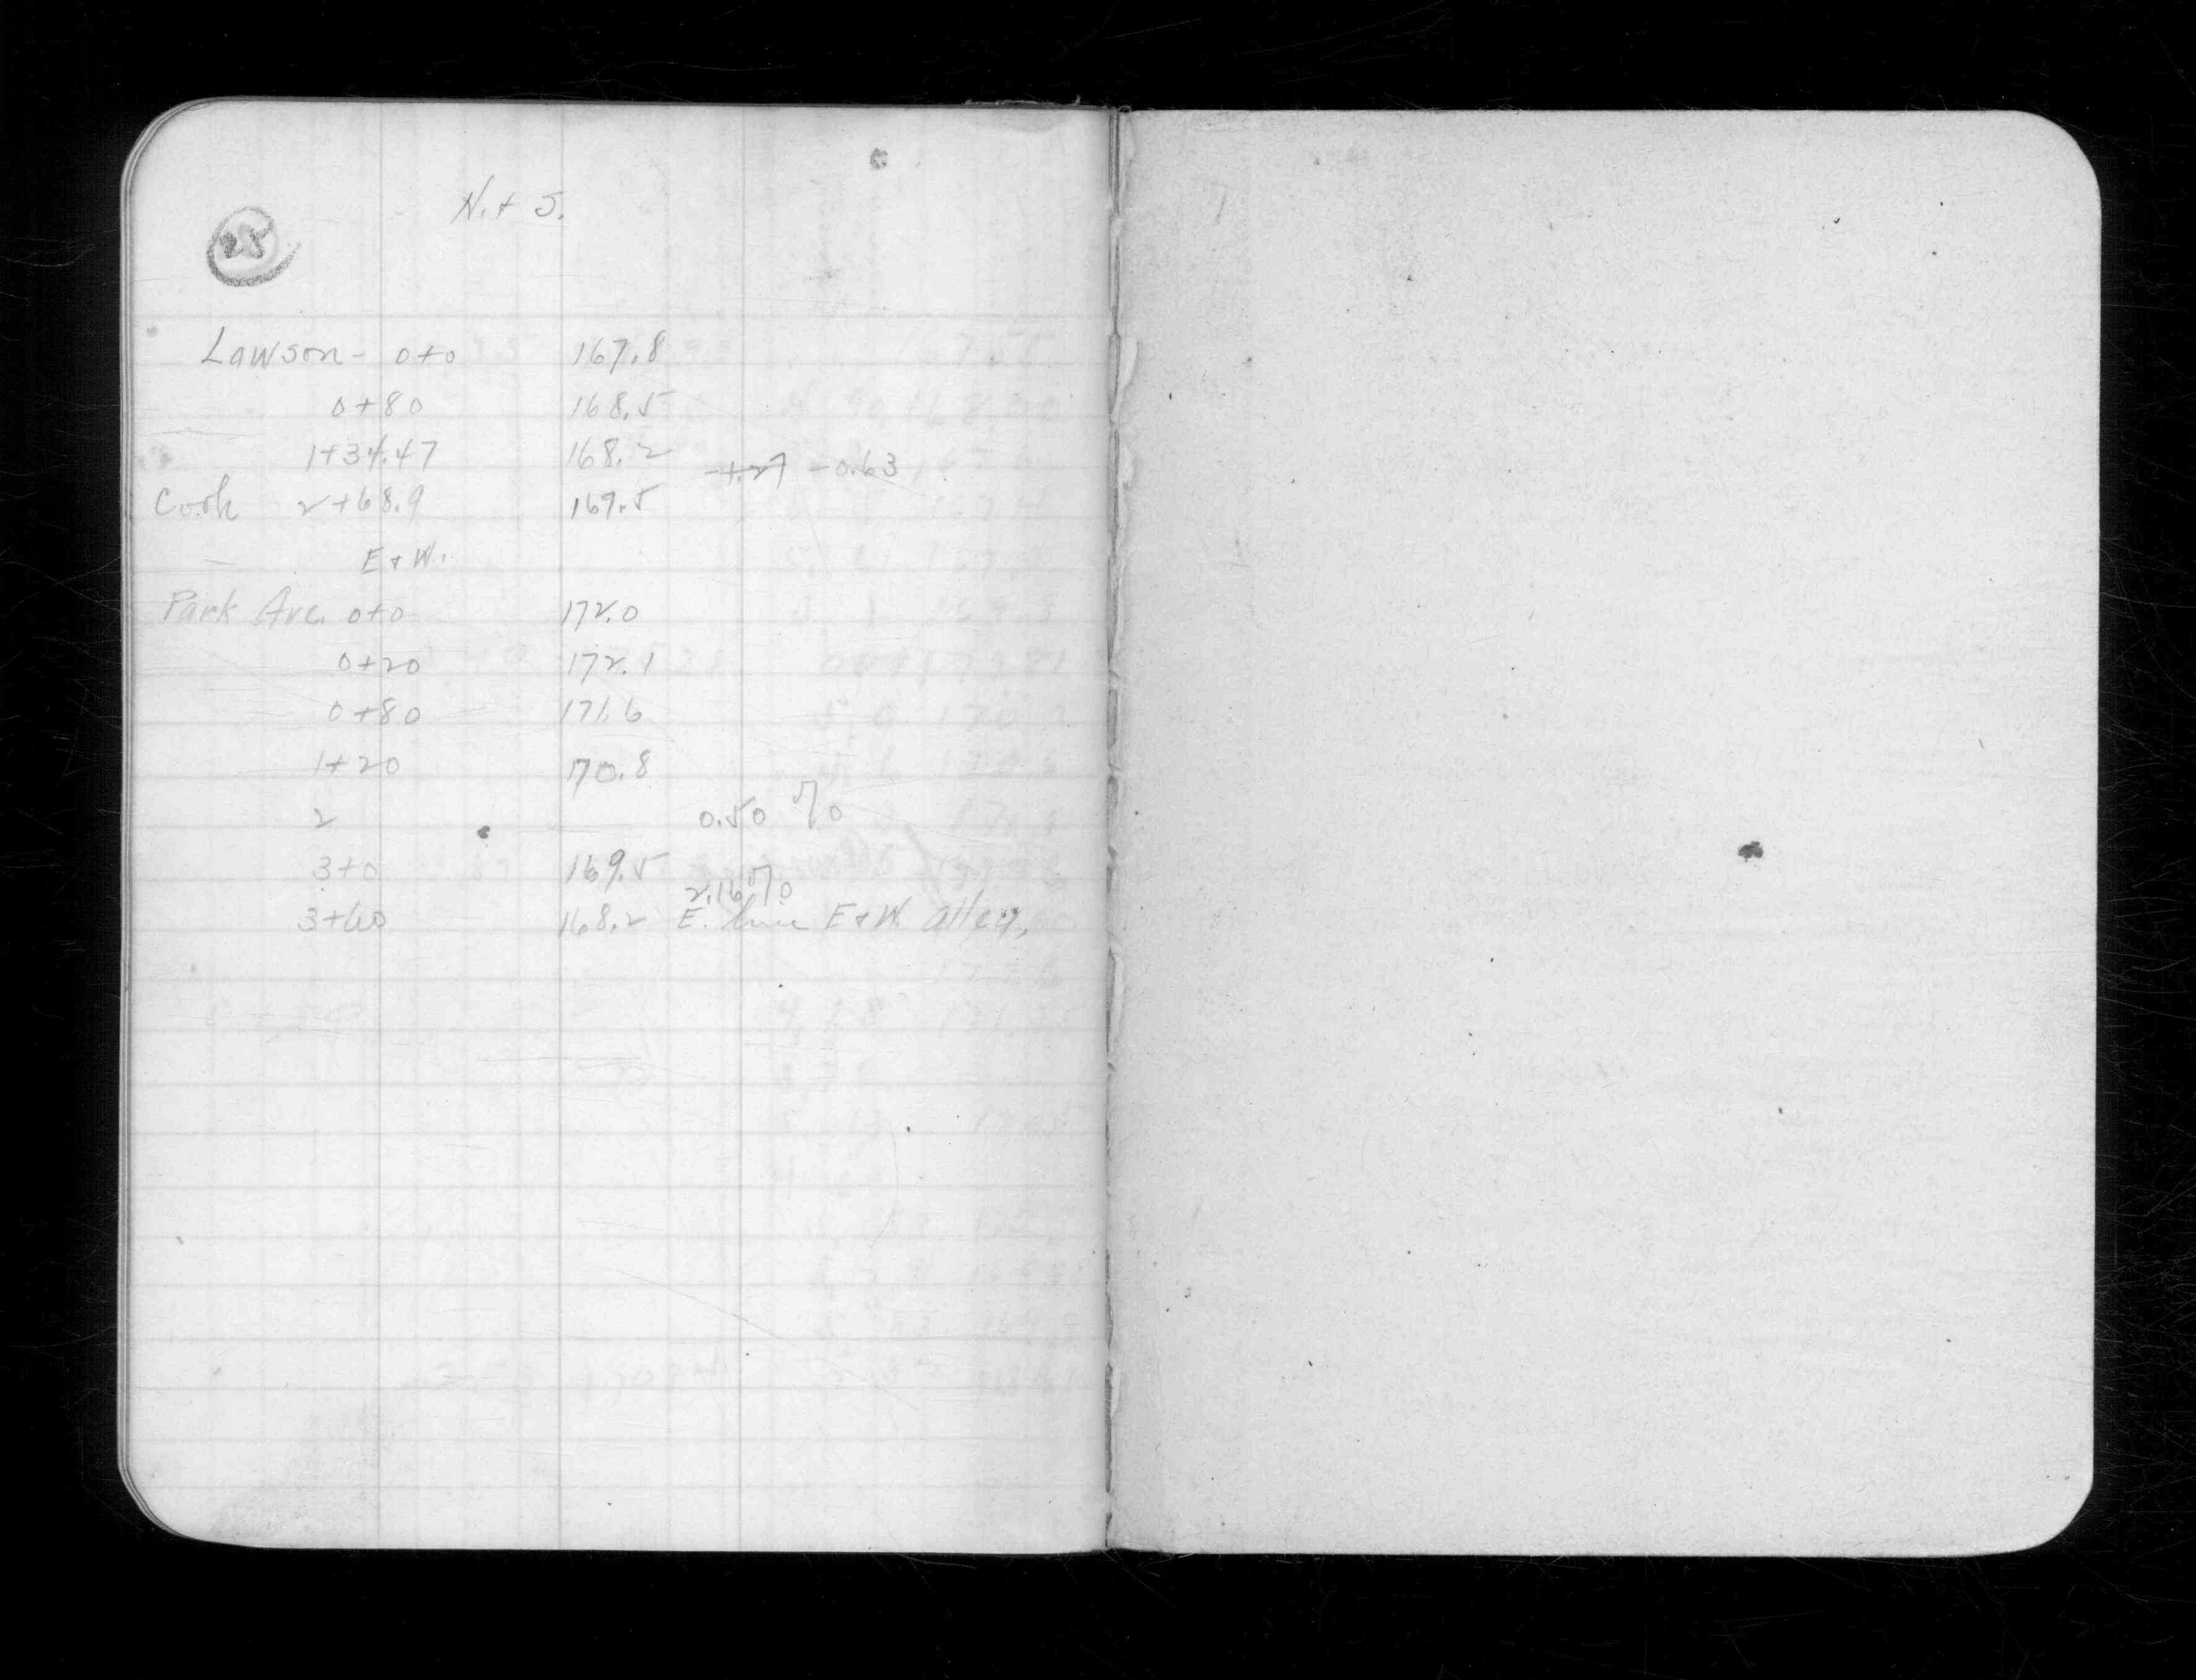 N. + S.
25
Lawson - 0+0 167.8
0+80 168.5
1+34.47 168.2
-0.63
Cook 2+68.9 167.5
E + W.
Park Ave. 0+0 172.0
0+20 172.1
0+80 171.6
1+20 170.8
2
0.50 %
3+0 169.5
2.16 %
3+60 168.2 E. line E + W. alley,